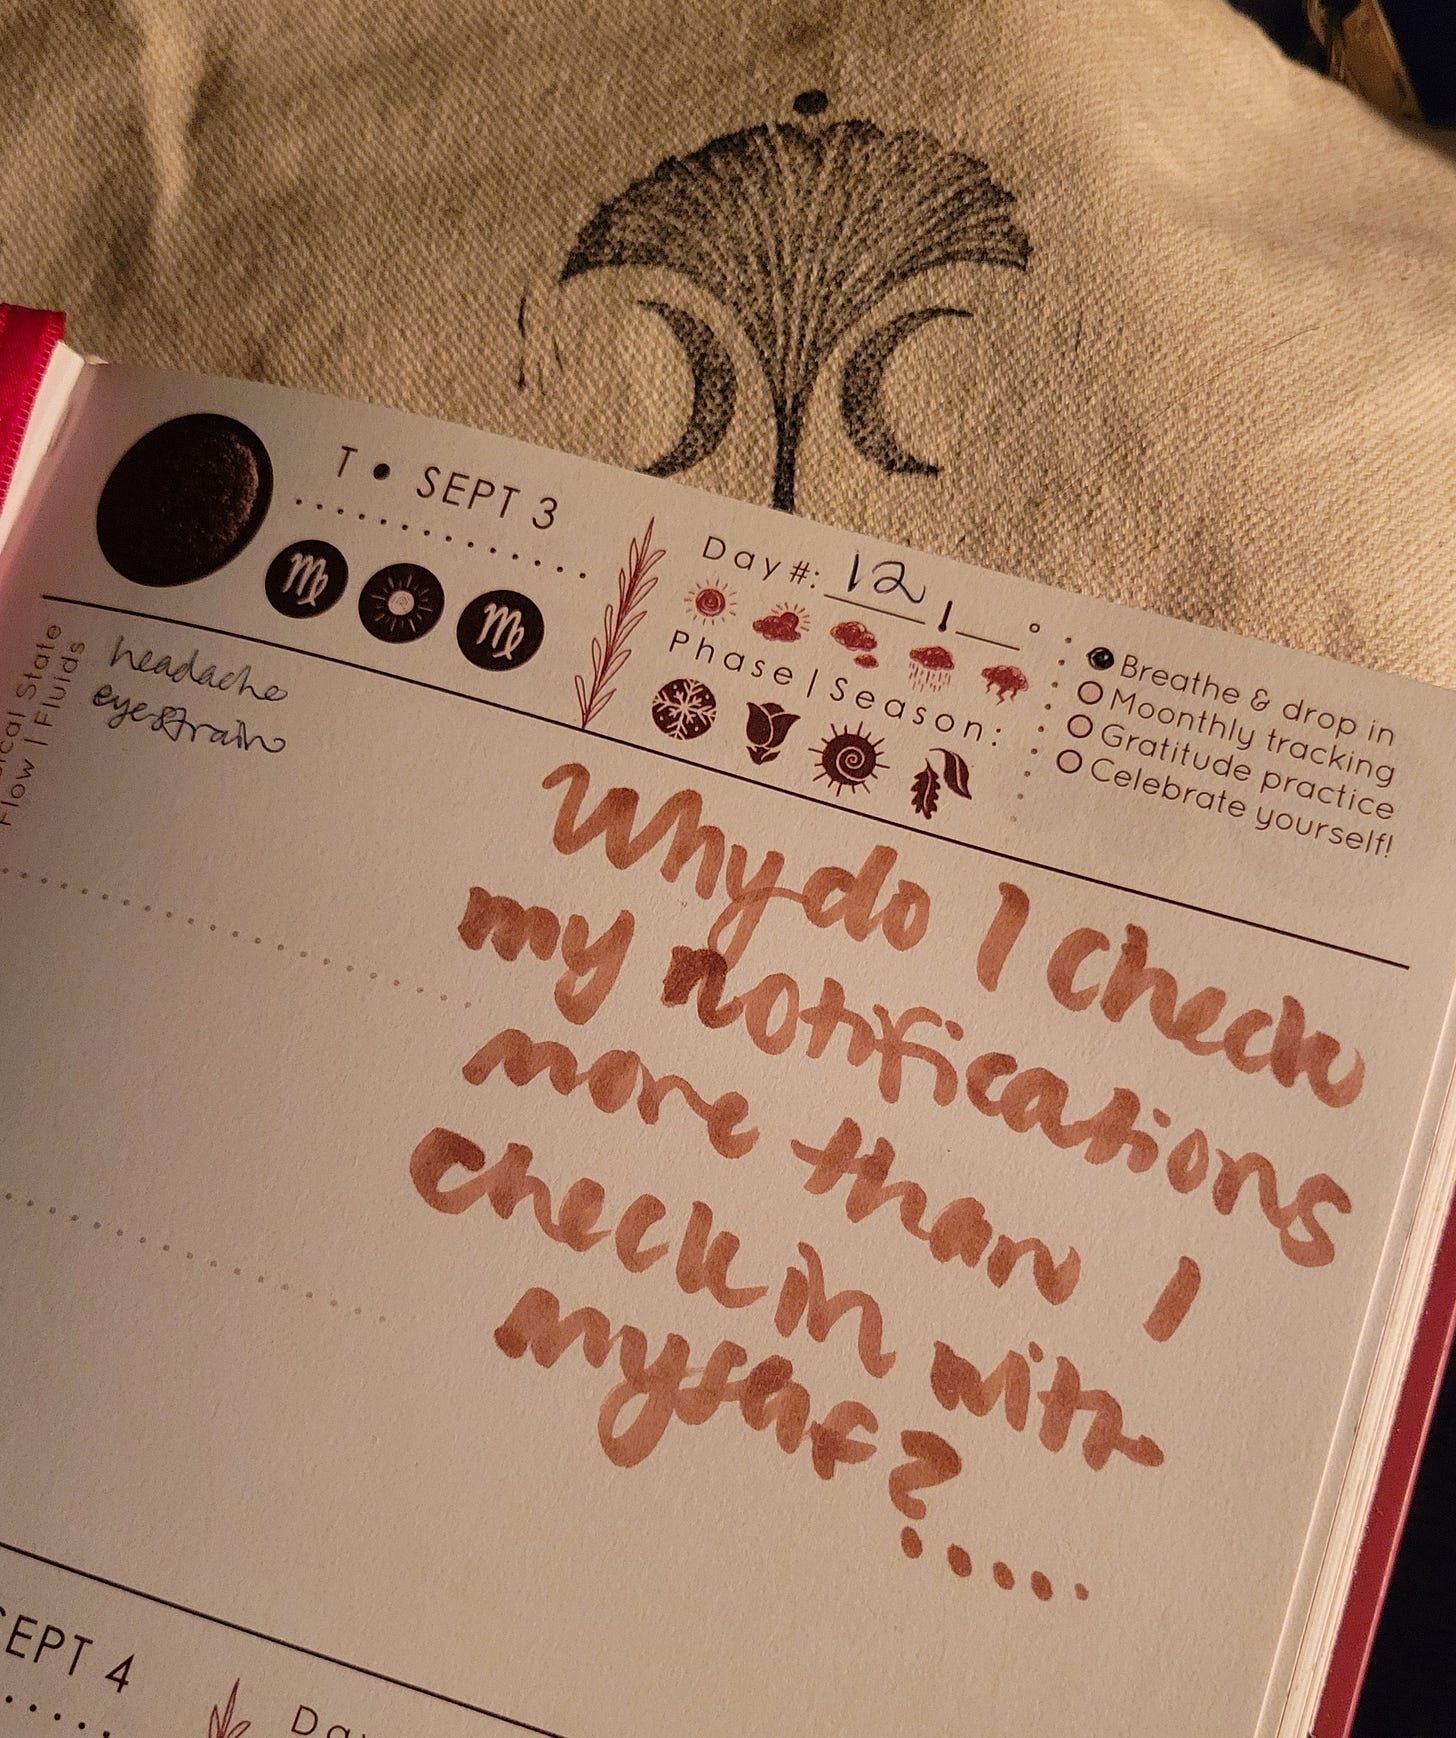 T • SEPT 3
Day#: 12
Phase | Season:
Breathe & drop in
Moonthly tracking
Gratitude practice
Celebrate yourself!
cal State
Flow | Fluids
headache
eyestrain
Why do I check
my notifications
more than I
check in with
myself?....
SEPT 4